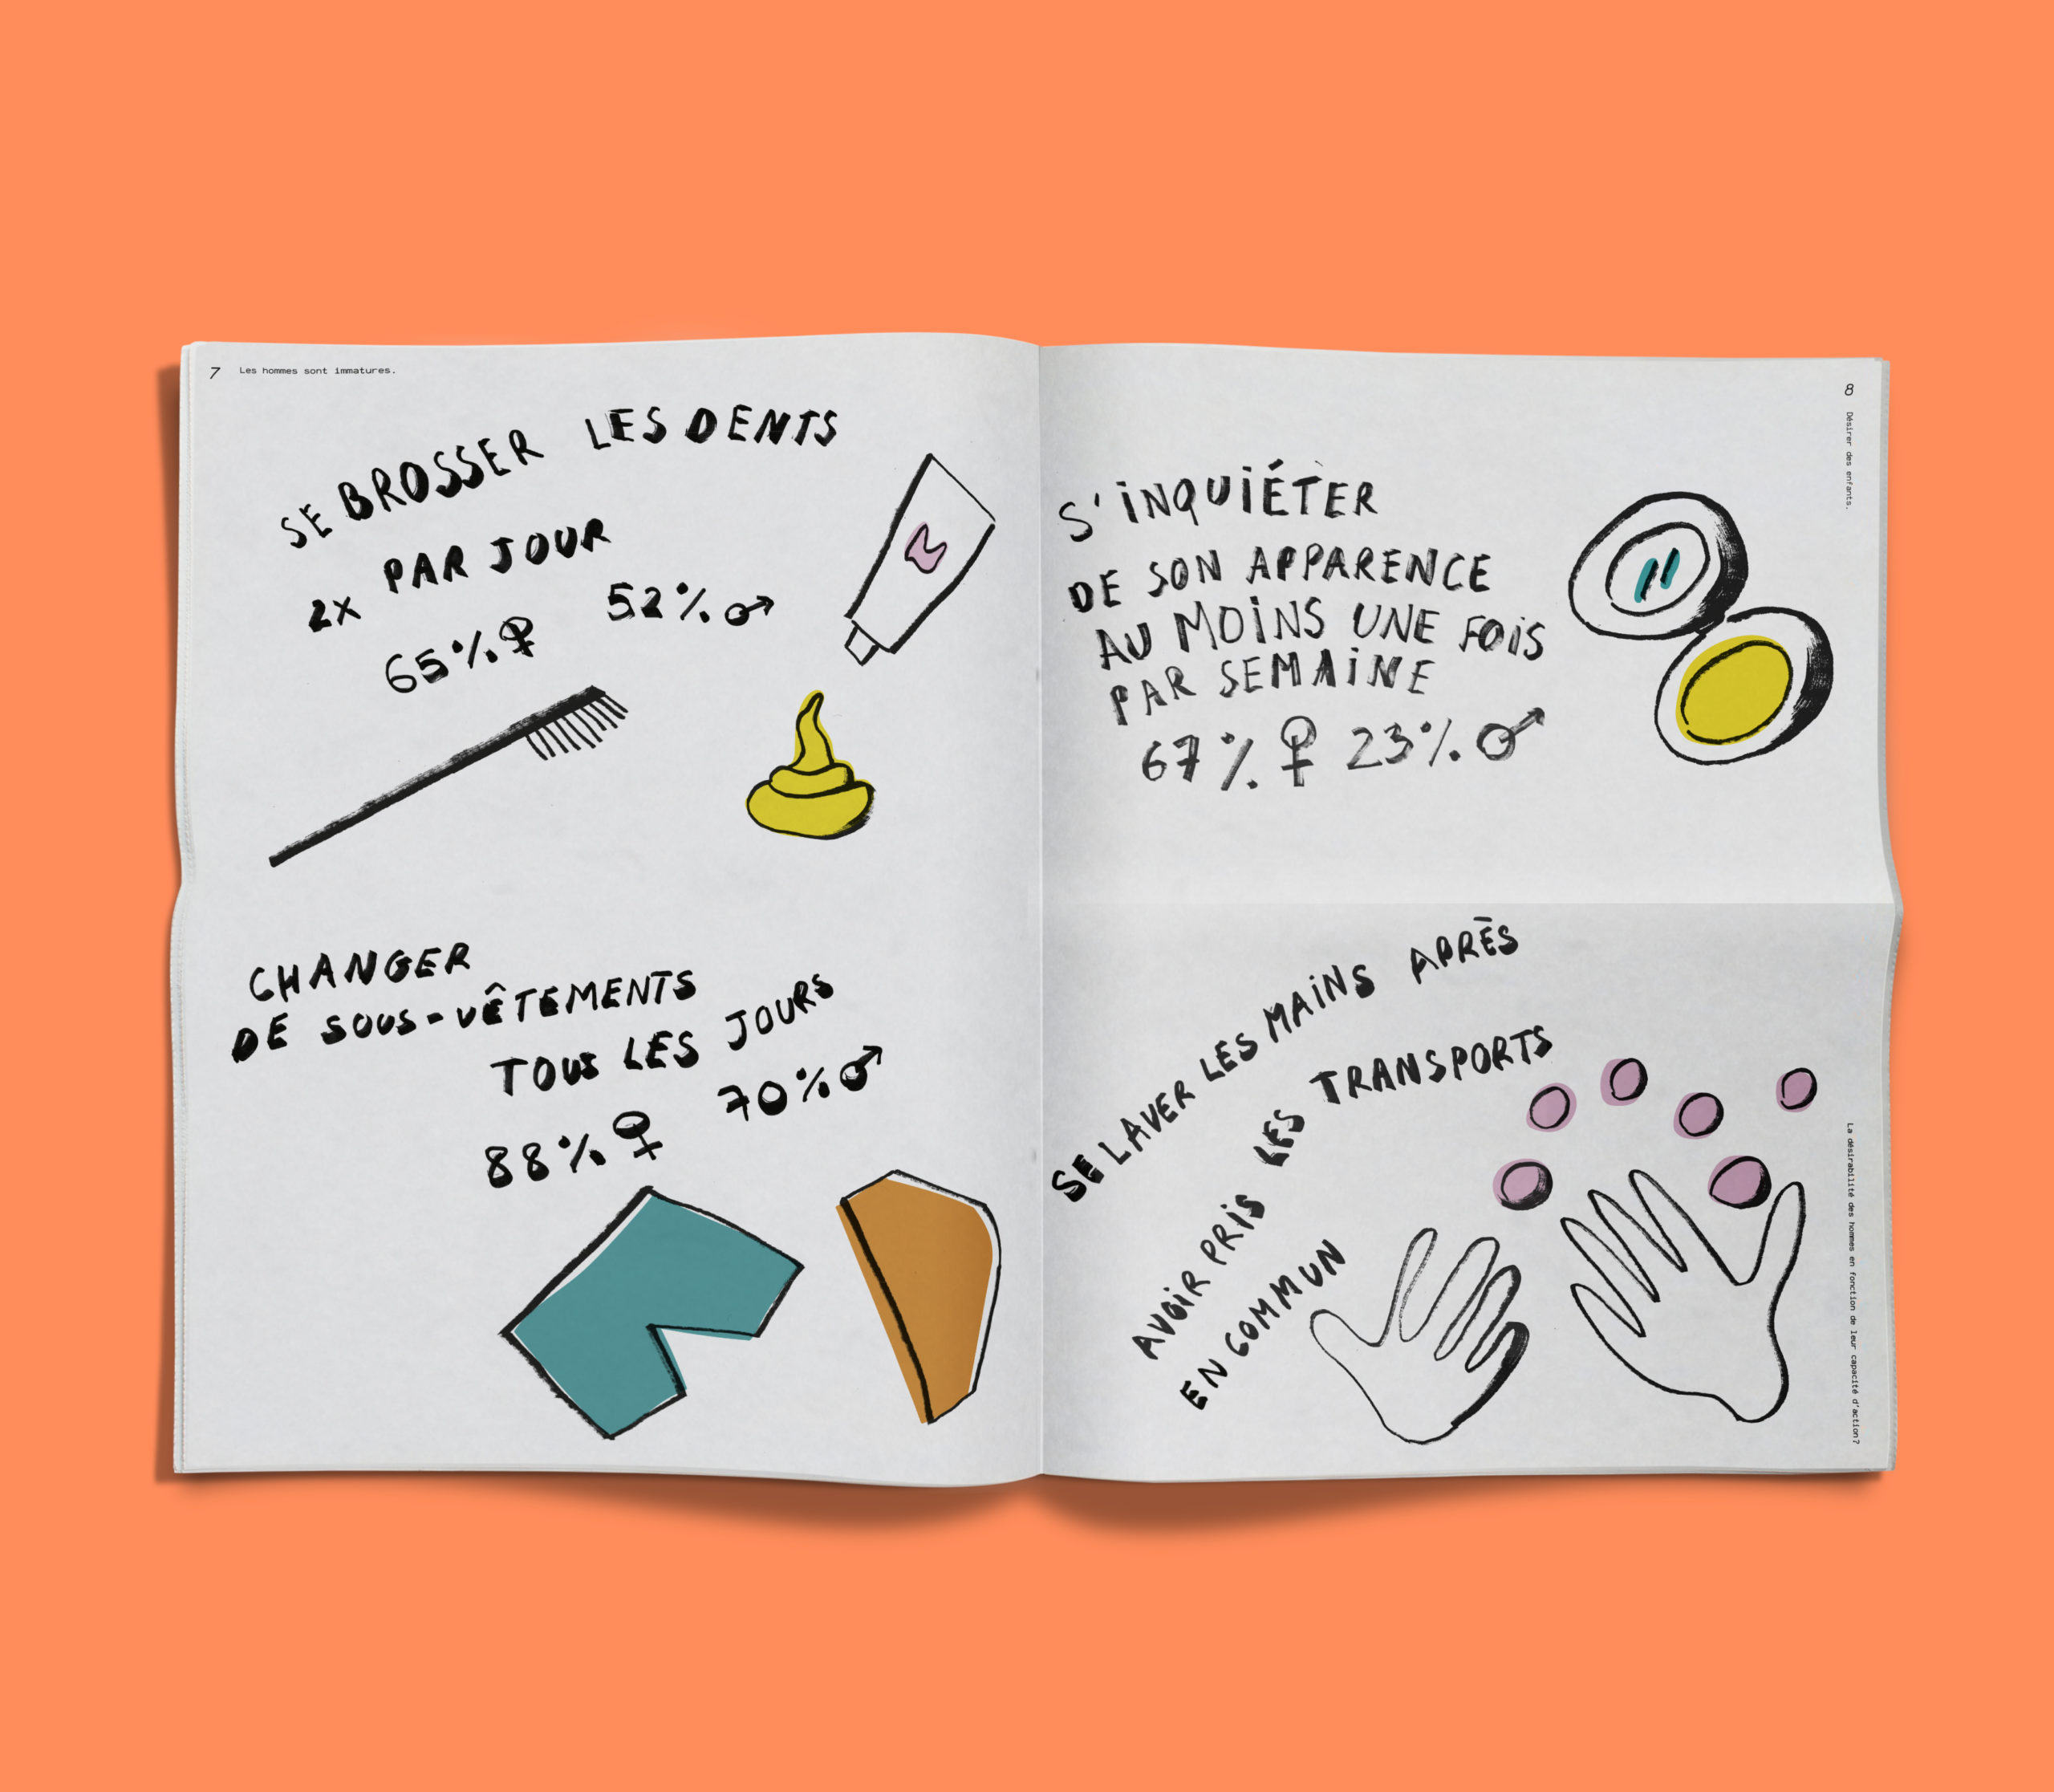 7 Les hommes sont immatures.
SE BROSSER LES DENTS
2x PAR JOUR
65% ♀ 52% ♂
CHANGER
DE SOUS-VÊTEMENTS
TOUS LES JOURS
88% ♀ 70% ♂
8 Désirer des enfants.
S'INQUIÉTER
DE SON APPARENCE
AU MOINS UNE FOIS
PAR SEMAINE
67% ♀ 23% ♂
SE LAVER LES MAINS APRÈS
AVOIR PRIS LES TRANSPORTS
EN COMMUN
La désirabilité des hommes en fonction de leur capacité d'action?